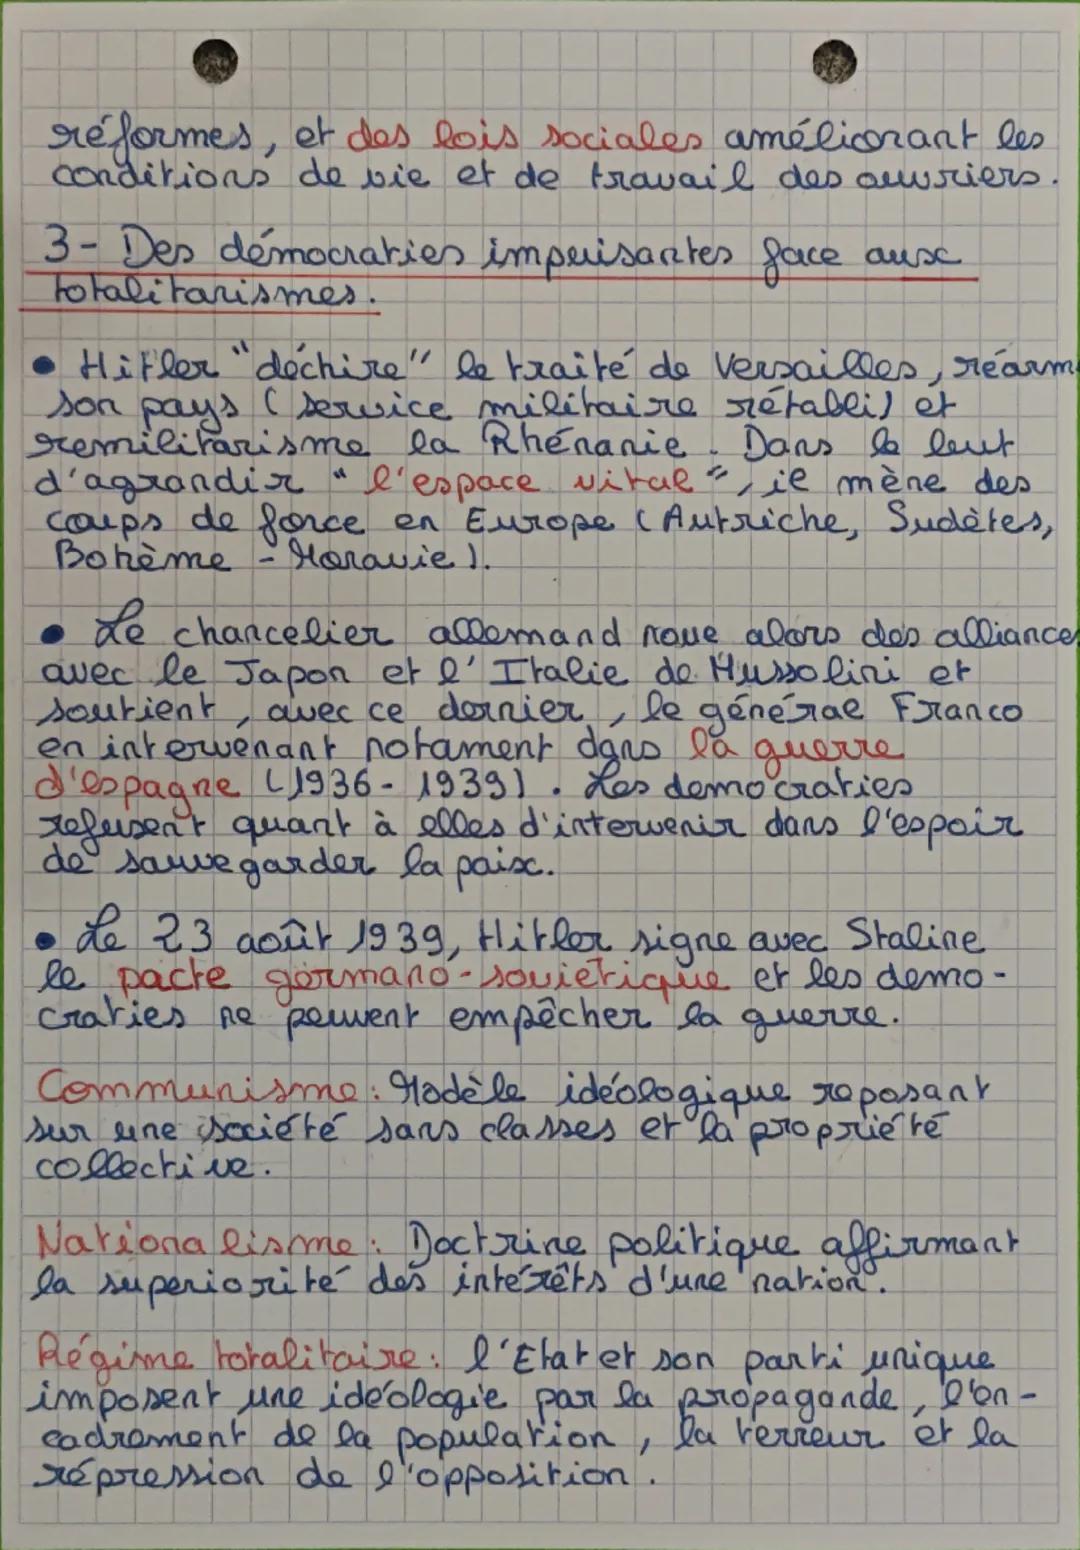 réformes, et des lois sociales améliorant les
conditions de vie et de travail des ouvriers.
3- Des démocraties impuisantes face aux
totalitarismes.
• Hitler "déchire" le traité de Versailles, réarme
son pays (service militaire rétabli) et
remilitarisme la Rhénanie. Dans le leut
d'agrandir "l'espace vital", il mène des
coups de force en Europe (Autriche, Sudètes,
Bohème - Moravie).
• Le chancelier allemand noue alors des alliances
avec le Japon et l'Italie de Mussolini et
soutient, avec ce dernier, le général Franco
en intervenant notament dans la guerre
d'espagne (1936-1939). Les democraties
refusent quant à elles d'intervenir dans l'espoir
de sauvegarder la paix.
• Le 23 août 1939, Hitler signe avec Staline
le pacte germano-soviétique et les demo-
craties ne peuvent empêcher la guerre.
Communisme: Modèle idéologique reposant
sur une société sans classes et la propriété
collective.
Nationalisme: Doctrine politique affirmant
la superiorité des intérêts d'une nation.
Régime totalitaire: l'Etat et son parti unique
imposent une idéologie par la propagande, l'en-
cadrement de la population, la terreur et la
répression de l'opposition.